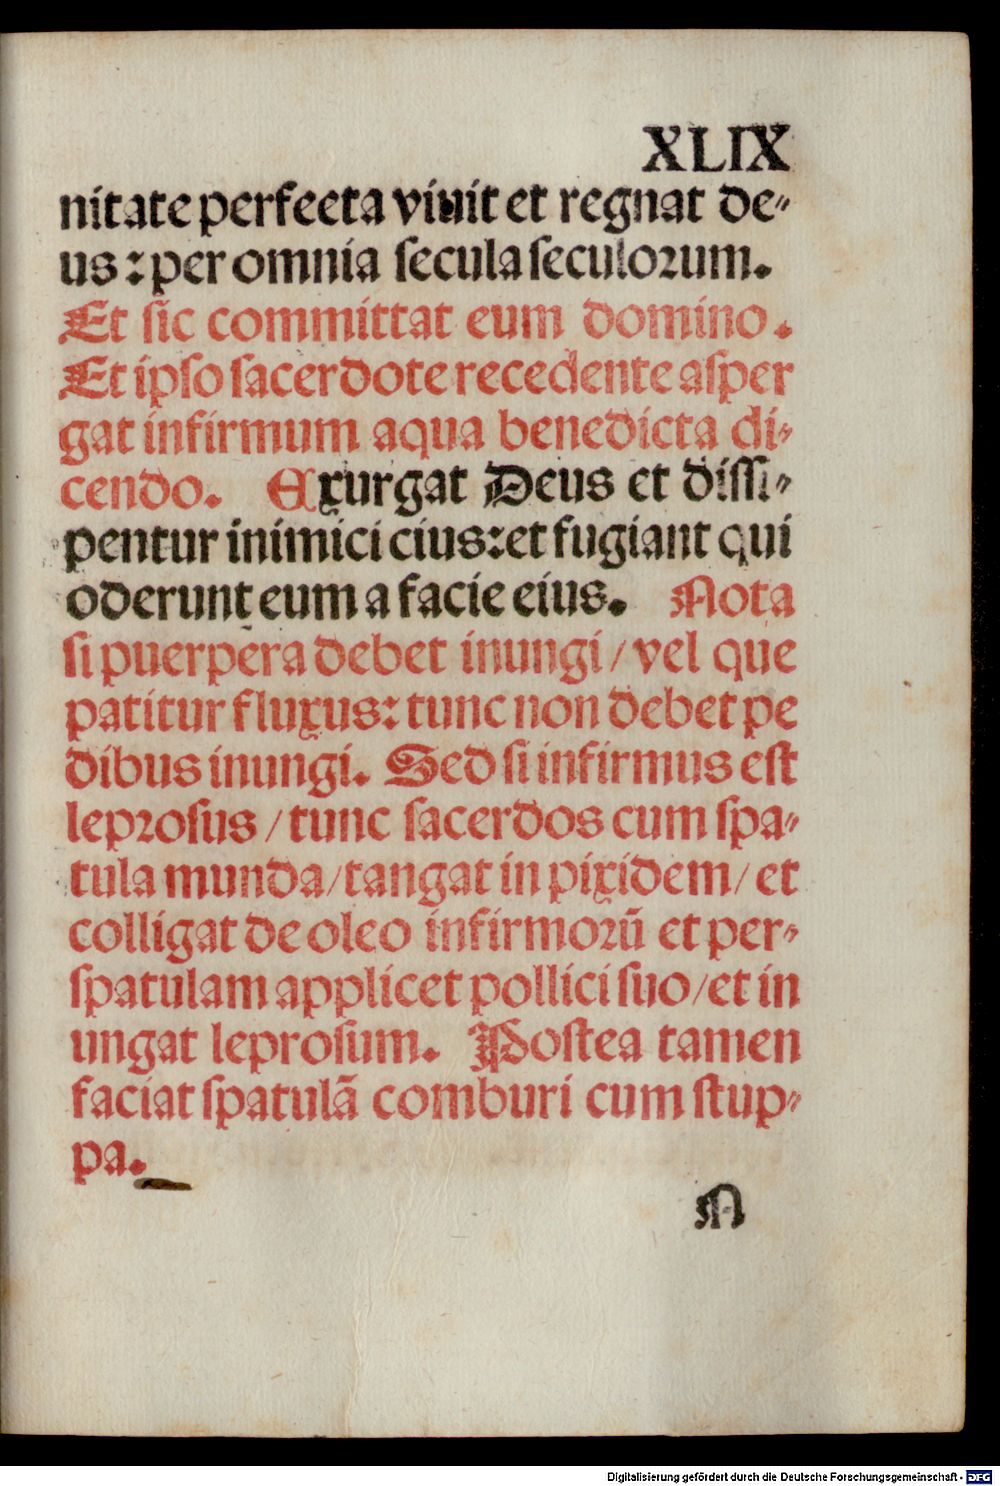 XLIX
nitate perfecta viuit et regnat de-
us : per omnia secula seculorum.
Et sic committat eum domino.
Et ipso sacerdote recedente asper
gat infirmum aqua benedicta di-
cendo. Exurgat Deus et dissi-
pentur inimici eius: et fugiant qui
oderunt eum a facie eius. Nota
si puerpera debet inungi / vel que
patitur fluxus: tunc non debet pe
dibus inungi. Sed si infirmus est
leprosus / tunc sacerdos cum spa-
tula munda / tangat in pixidem / et
colligat de oleo infirmorū et per-
spatulam applicet pollici suo / et in
ungat leprosum. Postea tamen
faciat spatulā comburi cum stup-
pa.
N
Digitalisierung gefördert durch die Deutsche Forschungsgemeinschaft - DFG